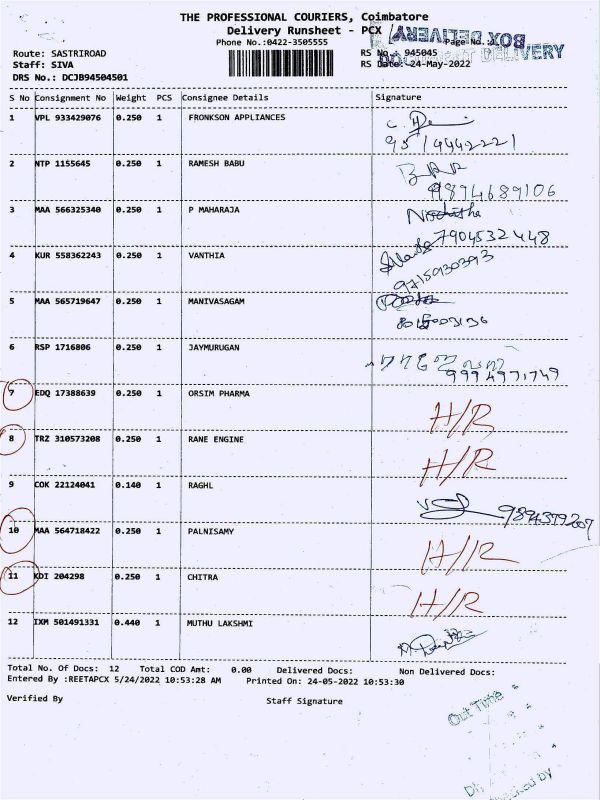 THE PROFESSIONAL COURIERS, Coimbatore
Delivery Runsheet - PCX
Phone No.:0422-3505555
BOX DELIVERY
DOCUMENT DELIVERY
Page No.:1
Route: SASTRIROAD
RS No.: 945045
Staff: SIVA
RS Date: 24-May-2022
DRS No.: DCJB94504501
S No Consignment No Weight PCS Consignee Details Signature
1 VPL 933429076 0.250 1 FRONKSON APPLIANCES
2 NTP 1155645 0.250 1 RAMESH BABU
9894689106
3 MAA 566325340 0.250 1 P MAHARAJA
7904532448
4 KUR 558362243 0.250 1 VANTHIA
9715930393
5 MAA 565719647 0.250 1 MANIVASAGAM
6 RSP 1716806 0.250 1 JAYMURUGAN
9994971749
7 EDQ 17388639 0.250 1 ORSIM PHARMA H/R
8 TRZ 310573208 0.250 1 RANE ENGINE H/R
9 COK 22124041 0.140 1 RAGHL
10 MAA 564718422 0.250 1 PALNISAMY H/R
11 KDI 204298 0.250 1 CHITRA H/R
12 IXM 501491331 0.440 1 MUTHU LAKSHMI
Total No. Of Docs: 12 Total COD Amt: 0.00 Delivered Docs: Non Delivered Docs:
Entered By :REETAPCX 5/24/2022 10:53:28 AM Printed On: 24-05-2022 10:53:30
Verified By Staff Signature
Out Time
by